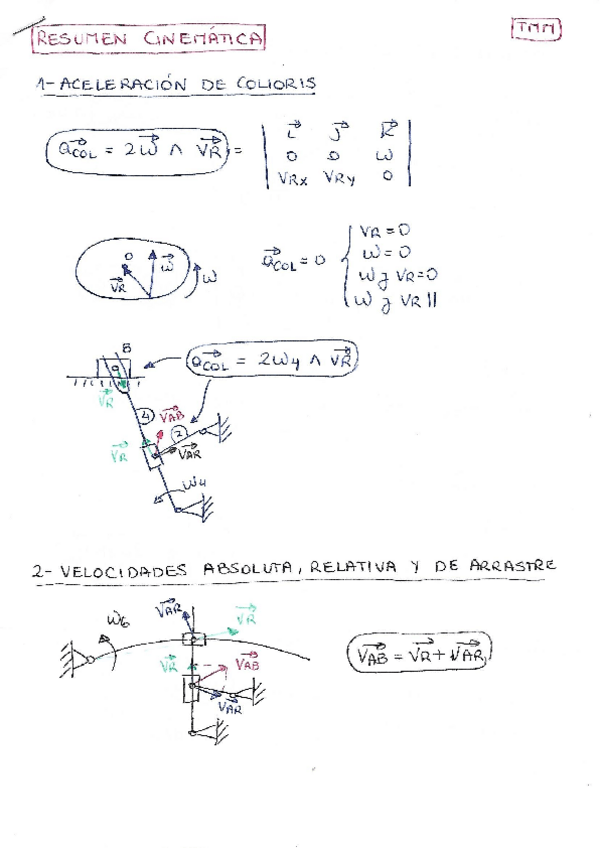 RESUMEN CINEMÁTICA
TMM
1- ACELERACIÓN DE COLIORIS
a⃗COL = 2ω⃗ ∧ V⃗R = | i⃗ j⃗ k⃗ |
0 0 ω
VRx VRy 0
O
ω⃗
V⃗R
ω
a⃗COL = 0
VR = 0
ω = 0
ω y VR = 0
ω y VR ||
B
a⃗COL = 2ω4 ∧ V⃗R
V⃗R
4
V⃗AB
2
V⃗R
V⃗AR
ω4
2- VELOCIDADES ABSOLUTA, RELATIVA Y DE ARRASTRE
ω6
V⃗AR
V⃗R
V⃗R
V⃗AB
V⃗AR
V⃗AB = V⃗R + V⃗AR